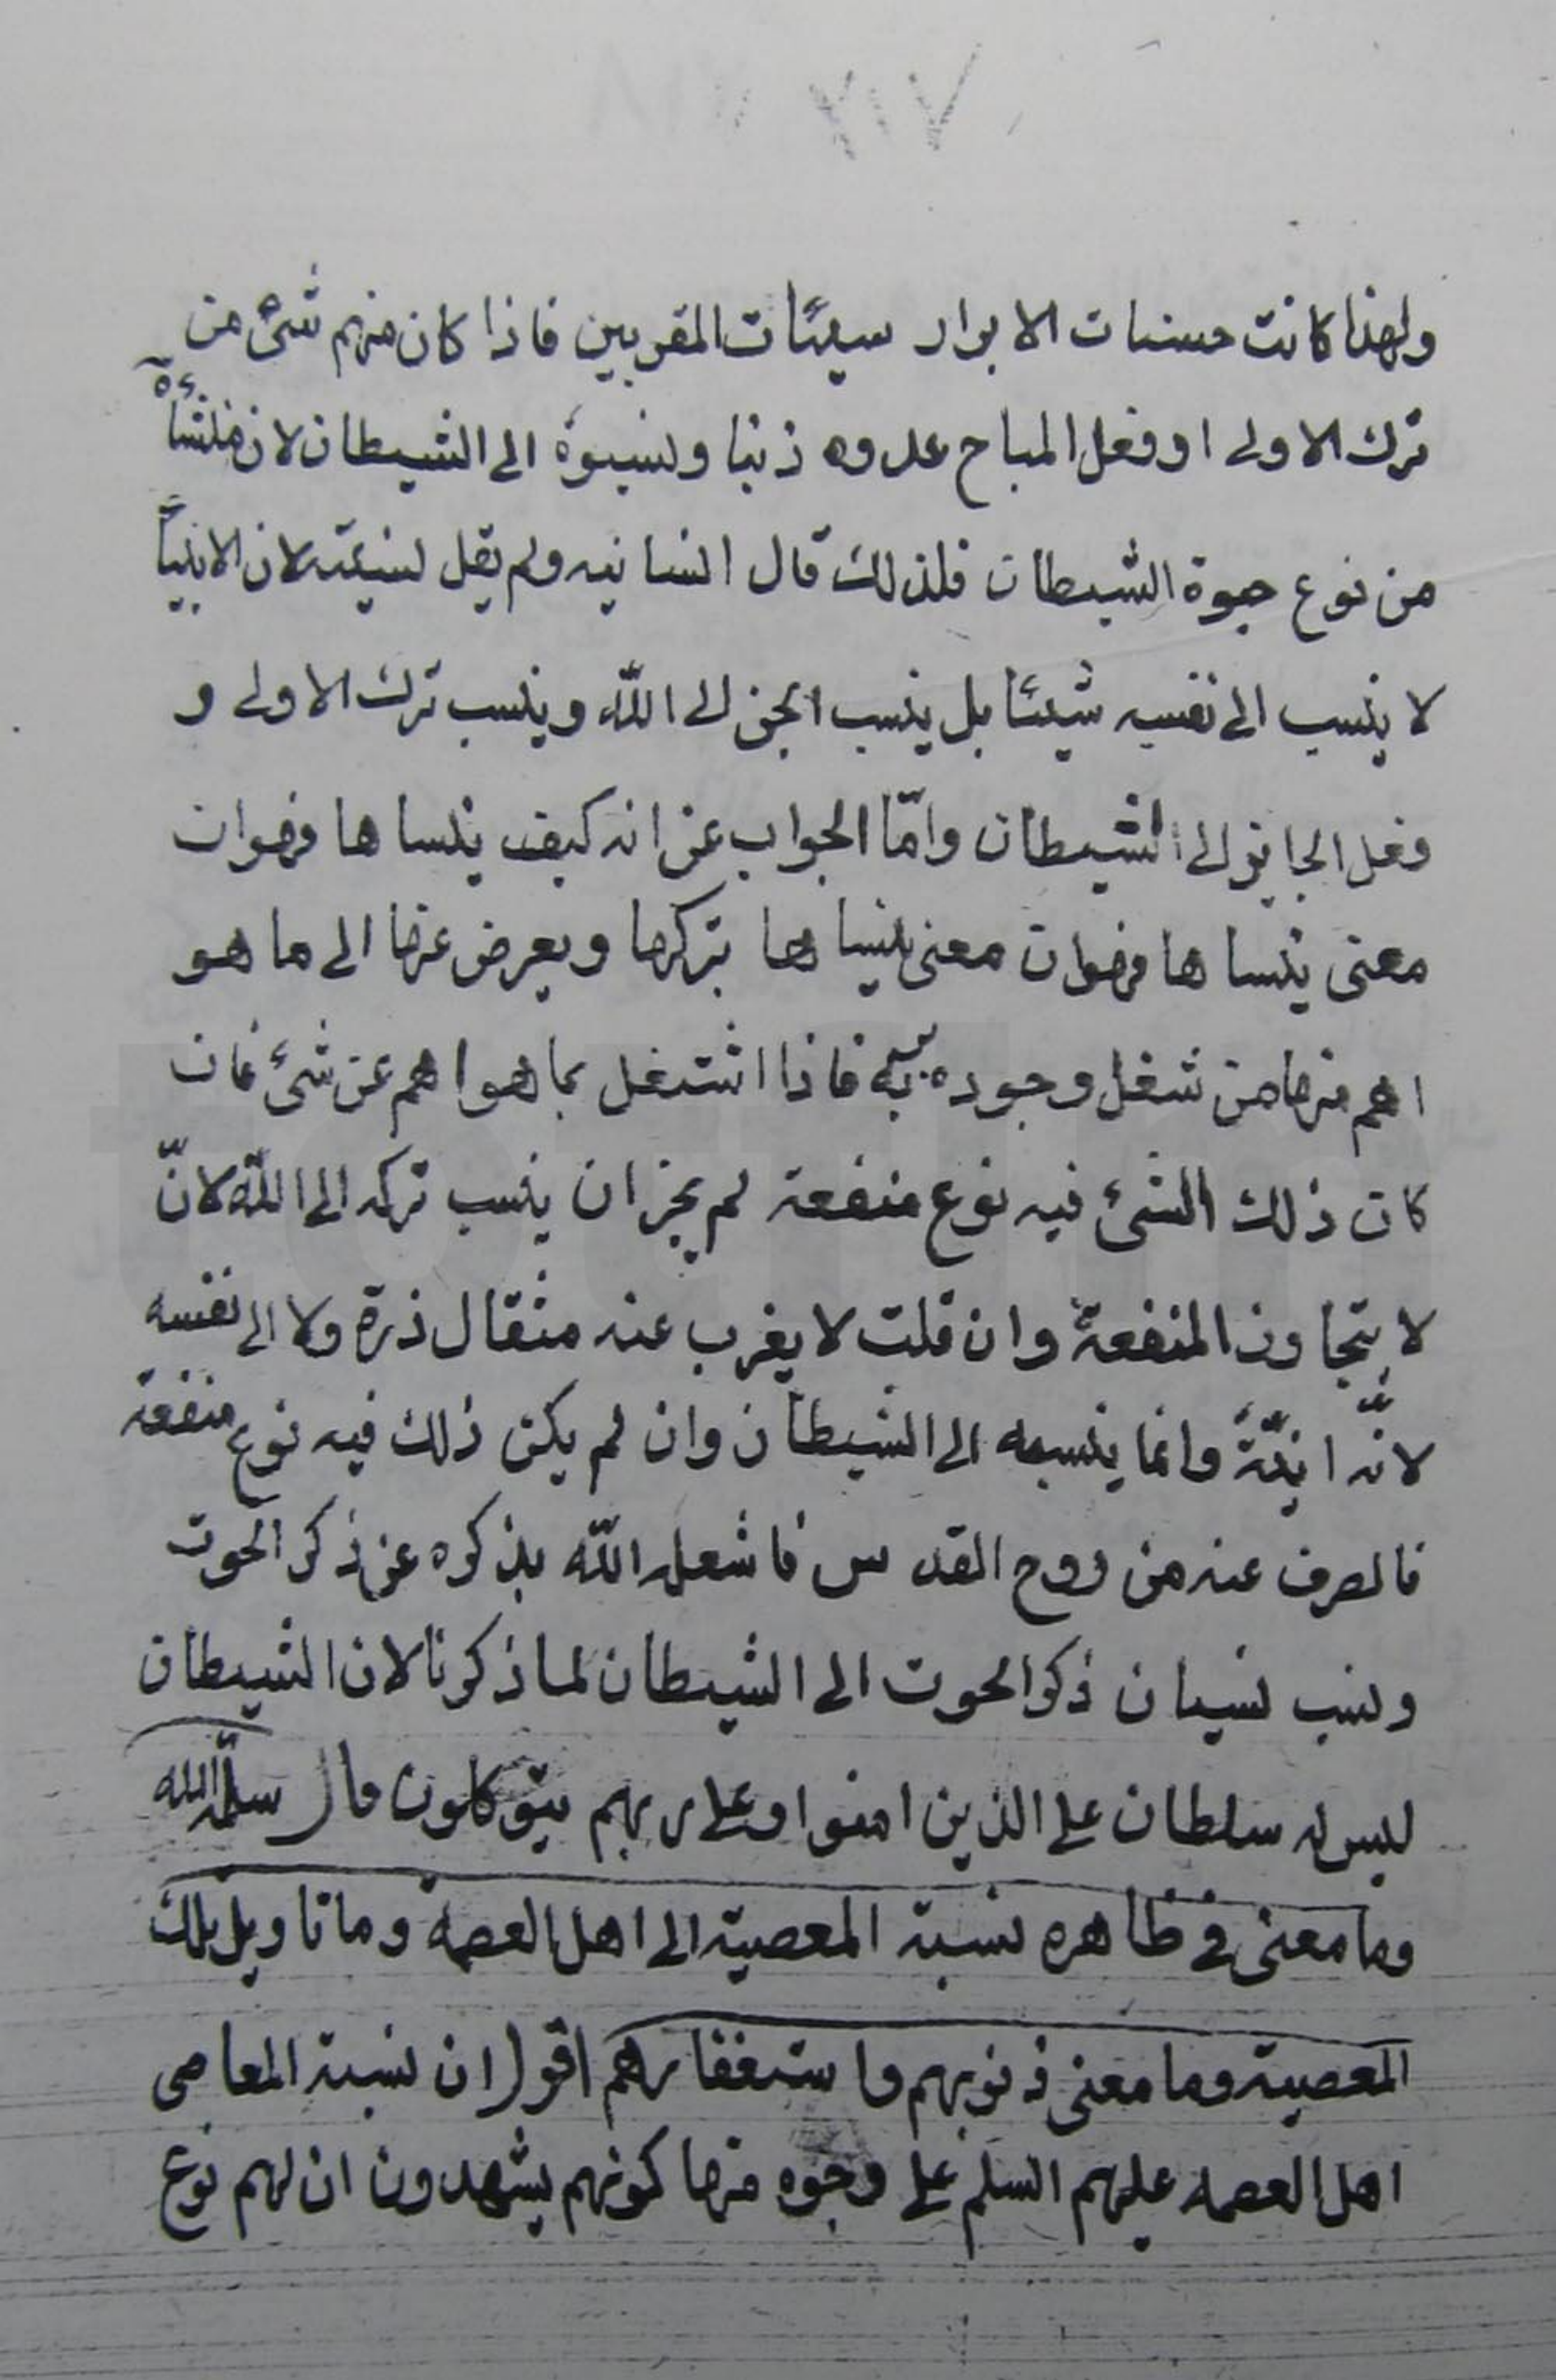 ٧١٧
ولهذا كانت حسنات الابرار سيئات المقربين فاذا كان منهم شئ من
ترك الاولى او فعل المباح عدوه ذنبا ونسبوه الى الشيطان لان منشأه
من نوع حبوة الشيطان فلذلك قال انسانيه ولم يقل نسيته لان الانبيآء
لا ينسب الى نفسه شيئا بل ينسب الخير الى الله وينسب ترك الاولى و
وفعل الجايز الى الشيطان وامّا الجواب عن انه كيف ينساها فهو ان
معنى ينساها فهو ان معنى ينساها يتركها ويعرض عنها الى ما هو
اهم منها من شغل وجوده به فاذا اشتغل بما هو اهم عن شئ فان
كان ذلك الشئ فيه نوع منفعة لم يجز ان ينسب تركه الى الله لانّ
لا يتجاوز المنفعة وان قلت لا يغرب عنه مثقال ذرة ولا الى نفسه
لانّه انيّة وانما ينسبه الى الشيطان وان لم يكن ذلك فيه نوع منفعة
فالصرف عنه من روح القدس فاشغله الله بذكره عن ذكر الحوت
ونسب نسيان ذكر الحوت الى الشيطان لما ذكرنا لان الشيطان
ليس له سلطان على الذين امنوا وعلى ربهم يتوكلون قال سلّمه الله
وما معنى في ظاهره نسبة المعصية الى اهل العصمة وما تاويل تلك
المعصية وما معنى ذنوبهم واستغفارهم اقول ان نسبة المعاصي
اهل العصمة عليهم السلم على وجوه منها كونهم يشهدون ان لهم نوع